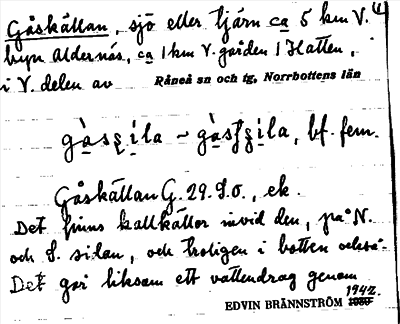 Gåskällan, sjö eller tjärn ca 5 km V. 4
byn Aldernäs, ca 1 km V. gården 1 Hatten,
i V. delen av Råneå sn och tg, Norrbottens län
gȧsʂila ~ gȧsʈʂila, bf. fem.
Gåskällan G. 29. S.O., ek.
Det finns kallkällor invid den, på N.
och S. sidan, och troligen i botten också.
Det gör liksom ett vattendrag genom
1942.
EDVIN BRÄNNSTRÖM 1939